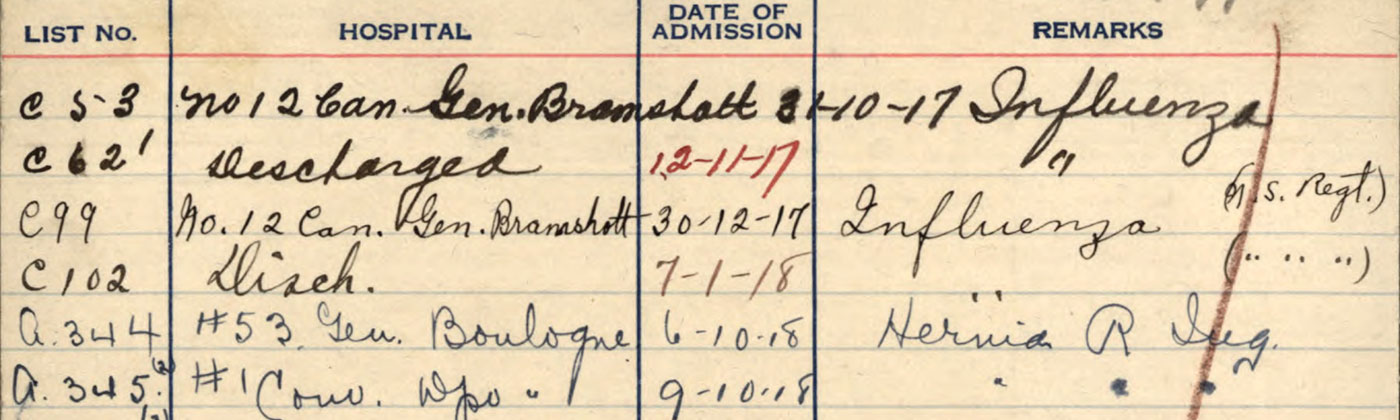 LIST No. HOSPITAL DATE OF ADMISSION REMARKS
C 53 No 12 Can. Gen. Bramshott 31-10-17 Influenza
C 62' Discharged 12-11-17 "
C 99 No. 12 Can. Gen. Bramshott 30-12-17 Influenza (N.S. Regt.)
C 102 Disch. 7-1-18 " (" " ")
A. 344 #53 Gen. Boulogne 6-10-18 Hernia R Ing.
A. 345. (2) #1 Conv. Dpo " 9-10-18 " " "